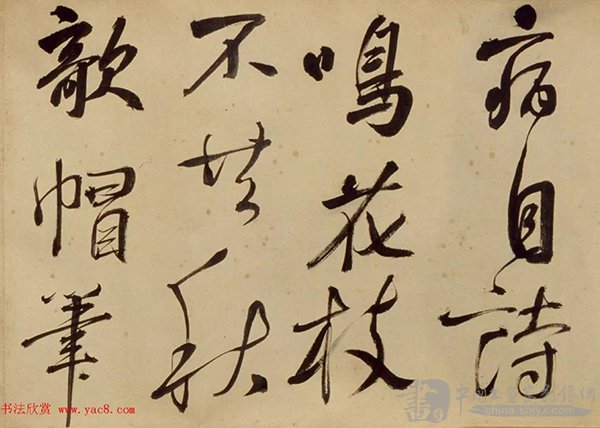 病目詩
鳴花枝
不共秋
欹帽筆
书法欣赏 www.yac8.com
china-shjyx.com